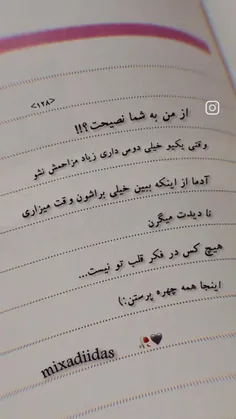 <۱۲۸>
از من به شما نصیحت؟!!
وقتی یکیو خیلی دوس داری زیاد مزاحمش نشو
آدما از اینکه ببین خیلی براشون وقت میزاری
نا دیدت میگرن
هیچ کس در فکر قلب تو نیست...
اینجا همه چهره پرستن:)
🥀🖤
mixadiidas